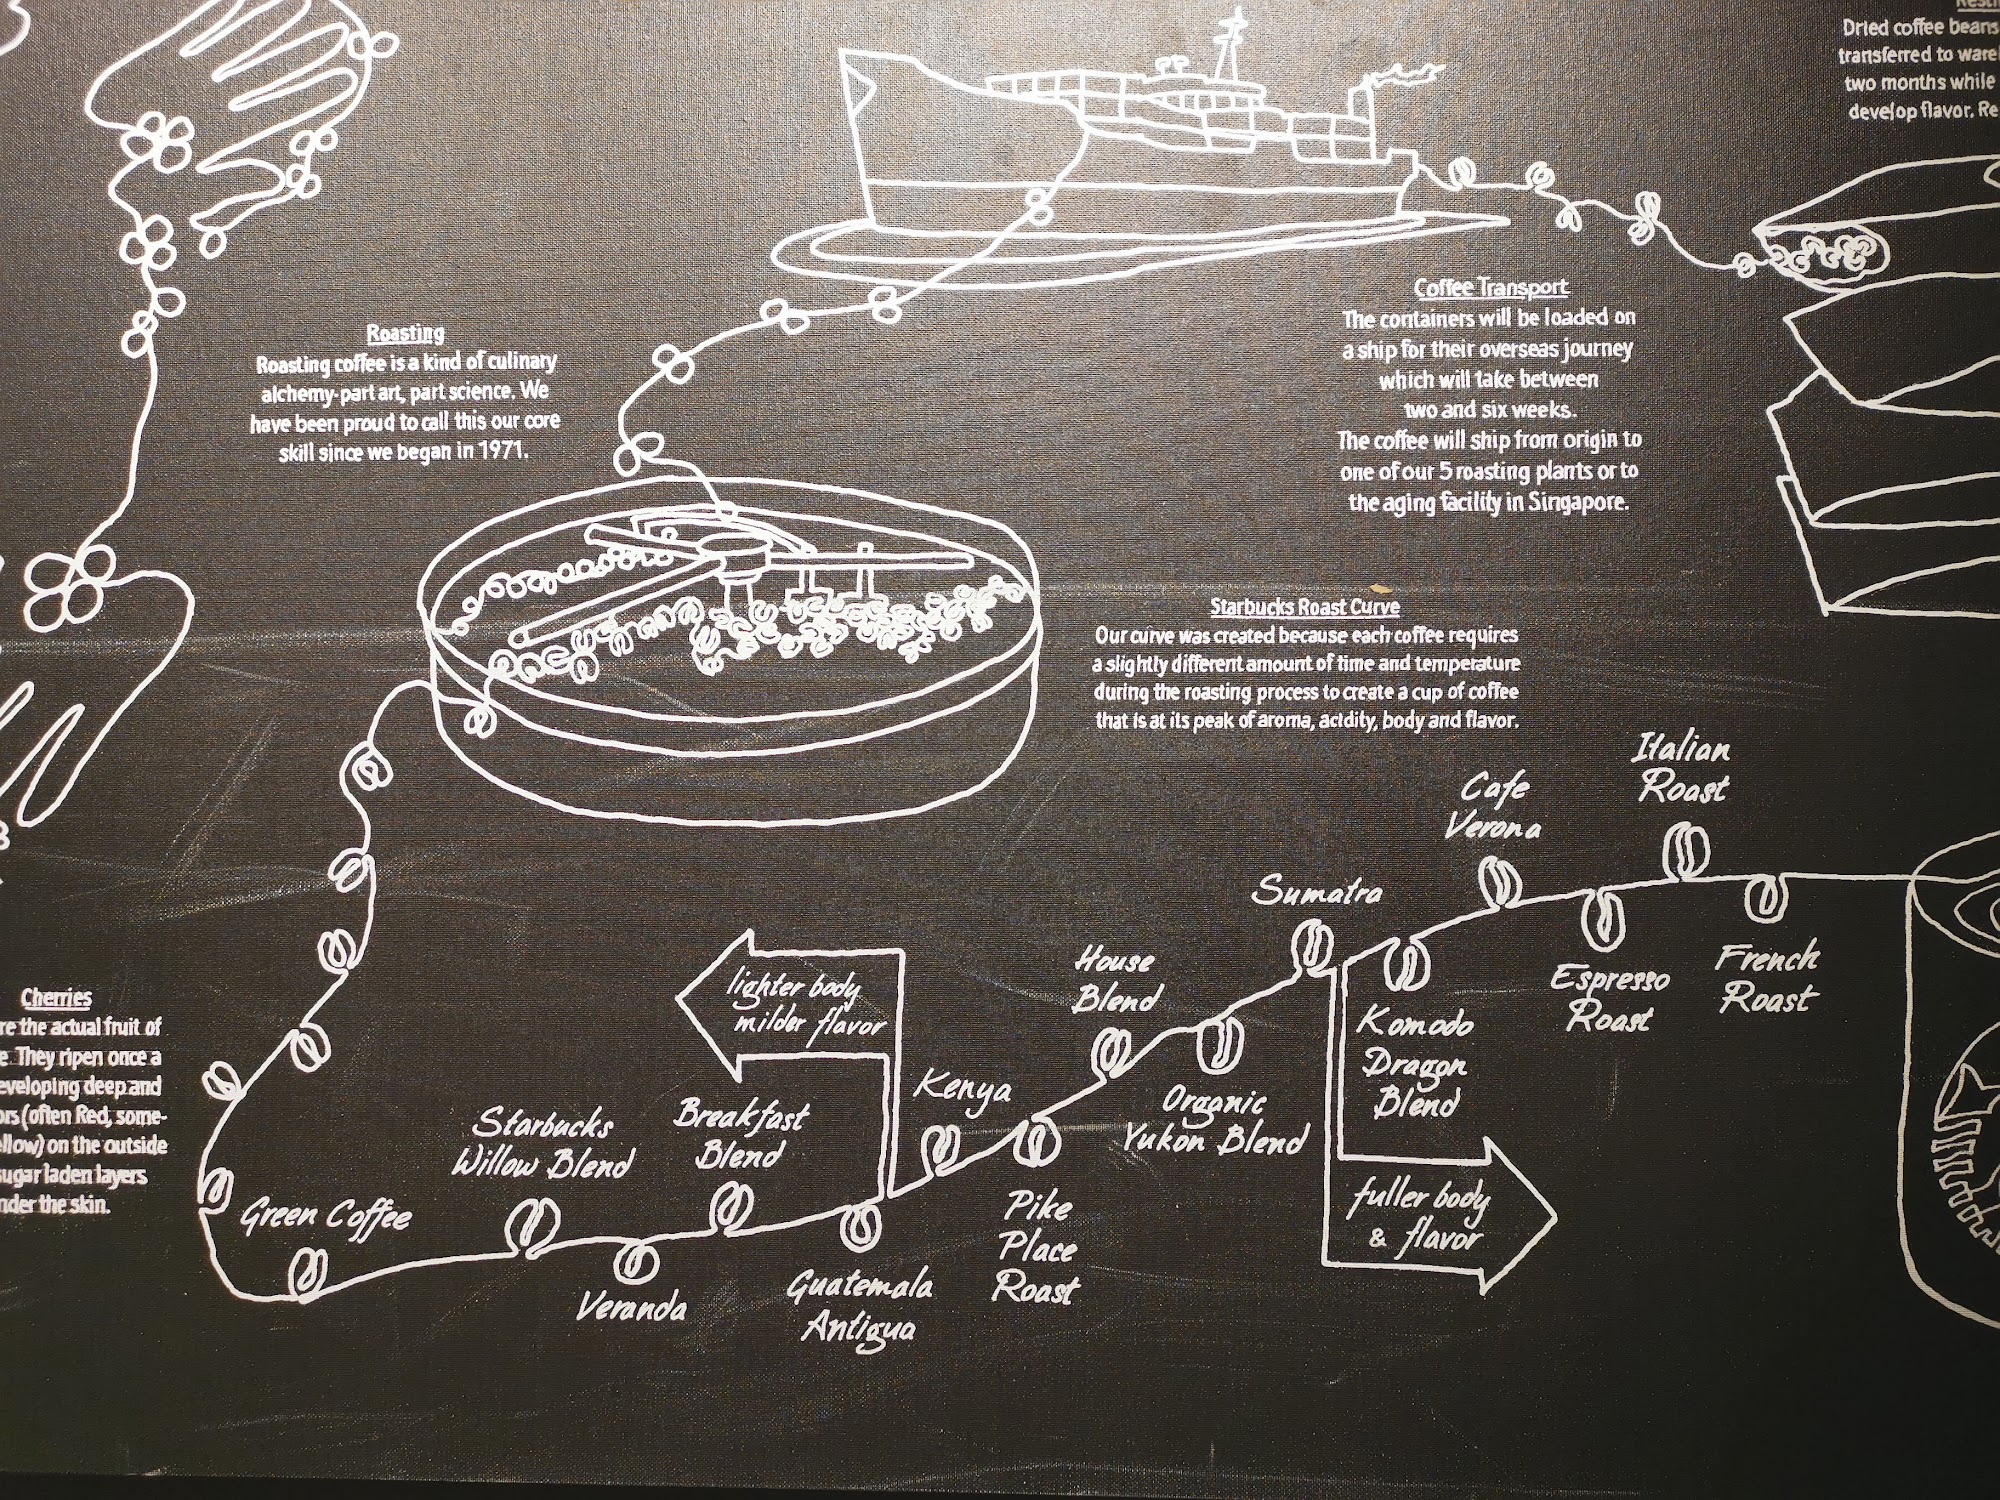 Dried coffee beans
transferred to
two months while
develop flavor.
Coffee Transport
The containers will be loaded on
a ship for their overseas journey
which will take between
two and six weeks.
The coffee will ship from origin to
one of our 5 roasting plants or to
the aging facility in Singapore.
Roasting
Roasting coffee is a kind of culinary
alchemy-part art, part science. We
have been proud to call this our core
skill since we began in 1971.
Starbucks Roast Curve
Our curve was created because each coffee requires
a slightly different amount of time and temperature
during the roasting process to create a cup of coffee
that is at its peak of aroma, acidity, body and flavor.
Cherries
the actual fruit of
They ripen once a
deep and
(often Red, some-
on the outside
sugar laden layers
the skin.
Green Coffee
Starbucks
Willow Blend
Veranda
Breakfast
Blend
Guatemala
Antigua
lighter body
milder flavor
Kenya
Pike
Place
Roast
House
Blend
Organic
Yukon Blend
Sumatra
Komodo
Dragon
Blend
fuller body
& flavor
Cafe
Verona
Espresso
Roast
Italian
Roast
French
Roast